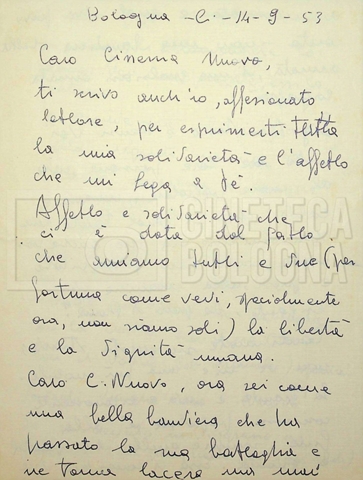 Bologna - li - 14 - 9 - 53
Caro Cinema Nuovo,
ti scrivo anch'io, affezionato
lettore, per esprimerti tutta
la mia solidarietà e l'affetto
che mi lega a te.
Affetto e solidarietà che
ci è data dal fatto
che amiamo tutti e due (per
fortuna come vedi, specialmente
ora, non siamo soli) la libertà
e la dignità umana.
Caro C. Nuovo, ora sei come
una bella bandiera che ha
passato la sua battaglia e
ne torna lacera ma mai
CINETECA
BOLOGNA